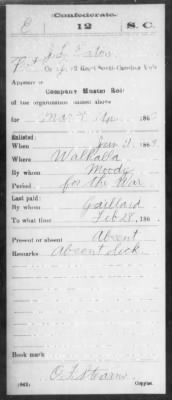 Confederate.
E 12 S. C.
J. L.
Co. , 12 Reg't South Carolina Vols.
Appears on
Company Muster Roll
of the organization named above
for Mar & Apr , 186
Enlisted:
When Jan 21 , 186
Where Walhalla
By whom Moody
Period for the War
Last paid:
By whom Gaillard
To what time Feb 28 , 186
Present or absent Absent
Remarks Absent Sick
Book mark
(642) Copyist.